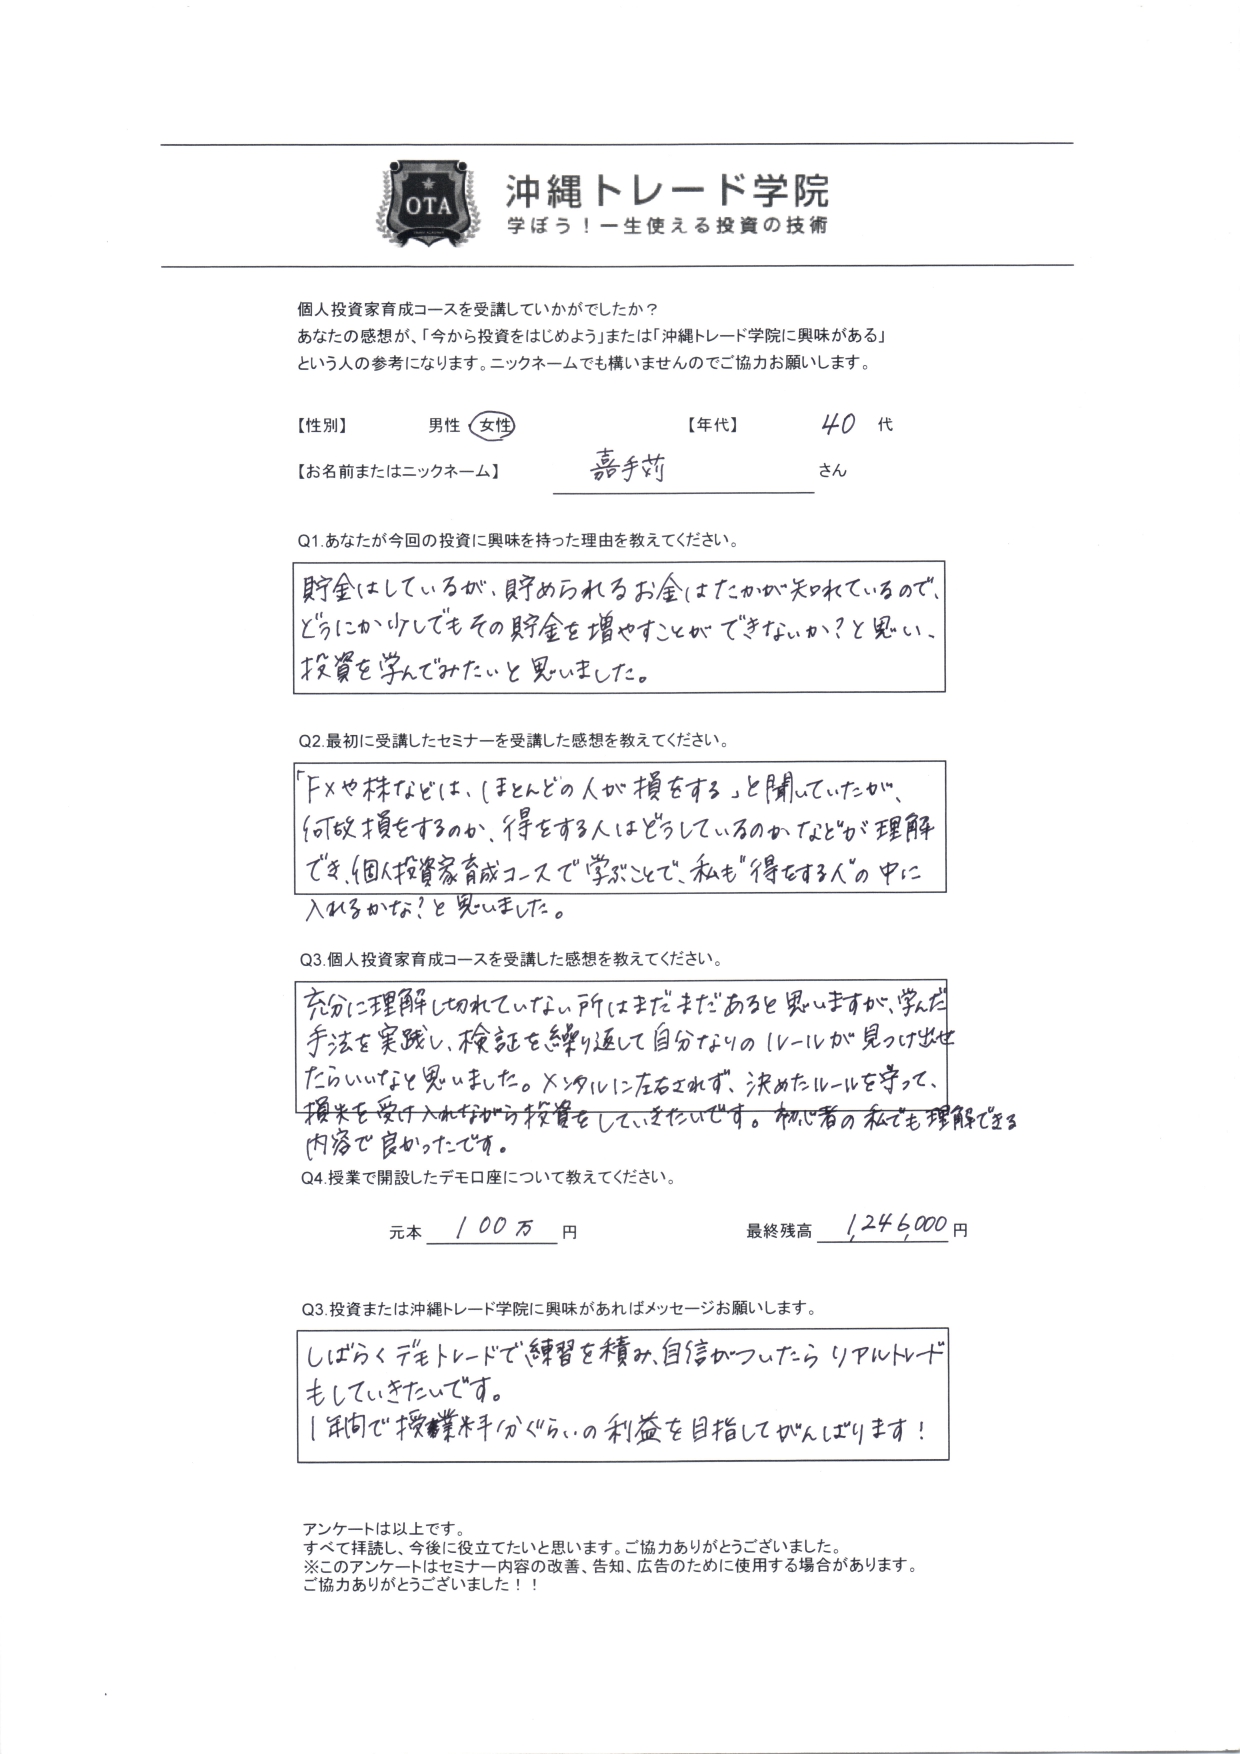 OTA
沖縄トレード学院
学ぼう！一生使える投資の技術
個人投資家育成コースを受講していかがでしたか？
あなたの感想が、「今から投資をはじめよう」または「沖縄トレード学院に興味がある」
という人の参考になります。ニックネームでも構いませんのでご協力お願いします。
【性別】 男性・女性 【年代】 40 代
【お名前またはニックネーム】 嘉手苅 さん
Q1.あなたが今回の投資に興味を持った理由を教えてください。
貯金はしているが、貯められるお金はたかが知れているので、
どうにか少しでもその貯金を増やすことができないか？と思い、
投資を学んでみたいと思いました。
Q2.最初に受講したセミナーを受講した感想を教えてください。
「FXや株などは、ほとんどの人が損をする」と聞いていたが、
何故損をするのか、得をする人はどうしているのかなどが理解
でき、個人投資家育成コースで学ぶことで、私も"得をする人"の中に
入れるかな？と思いました。
Q3.個人投資家育成コースを受講した感想を教えてください。
充分に理解し切れていない所はまだまだあると思いますが、学んだ
手法を実践し、検証を繰り返して自分なりのルールが見つけ出せ
たらいいなと思いました。メンタルに左右されず、決めたルールを守って、
損失を受け入れながら投資をしていきたいです。初心者の私でも理解できる
内容で良かったです。
Q4.授業で開設したデモ口座について教えてください。
元本 100万 円 最終残高 1,246,000 円
Q3.投資または沖縄トレード学院に興味があればメッセージお願いします。
しばらくデモトレードで練習を積み、自信がついたらリアルトレード
もしていきたいです。
1年間で授業料分ぐらいの利益を目指してがんばります！
アンケートは以上です。
すべて拝読し、今後に役立てたいと思います。ご協力ありがとうございました。
※このアンケートはセミナー内容の改善、告知、広告のために使用する場合があります。
ご協力ありがとうございました！！